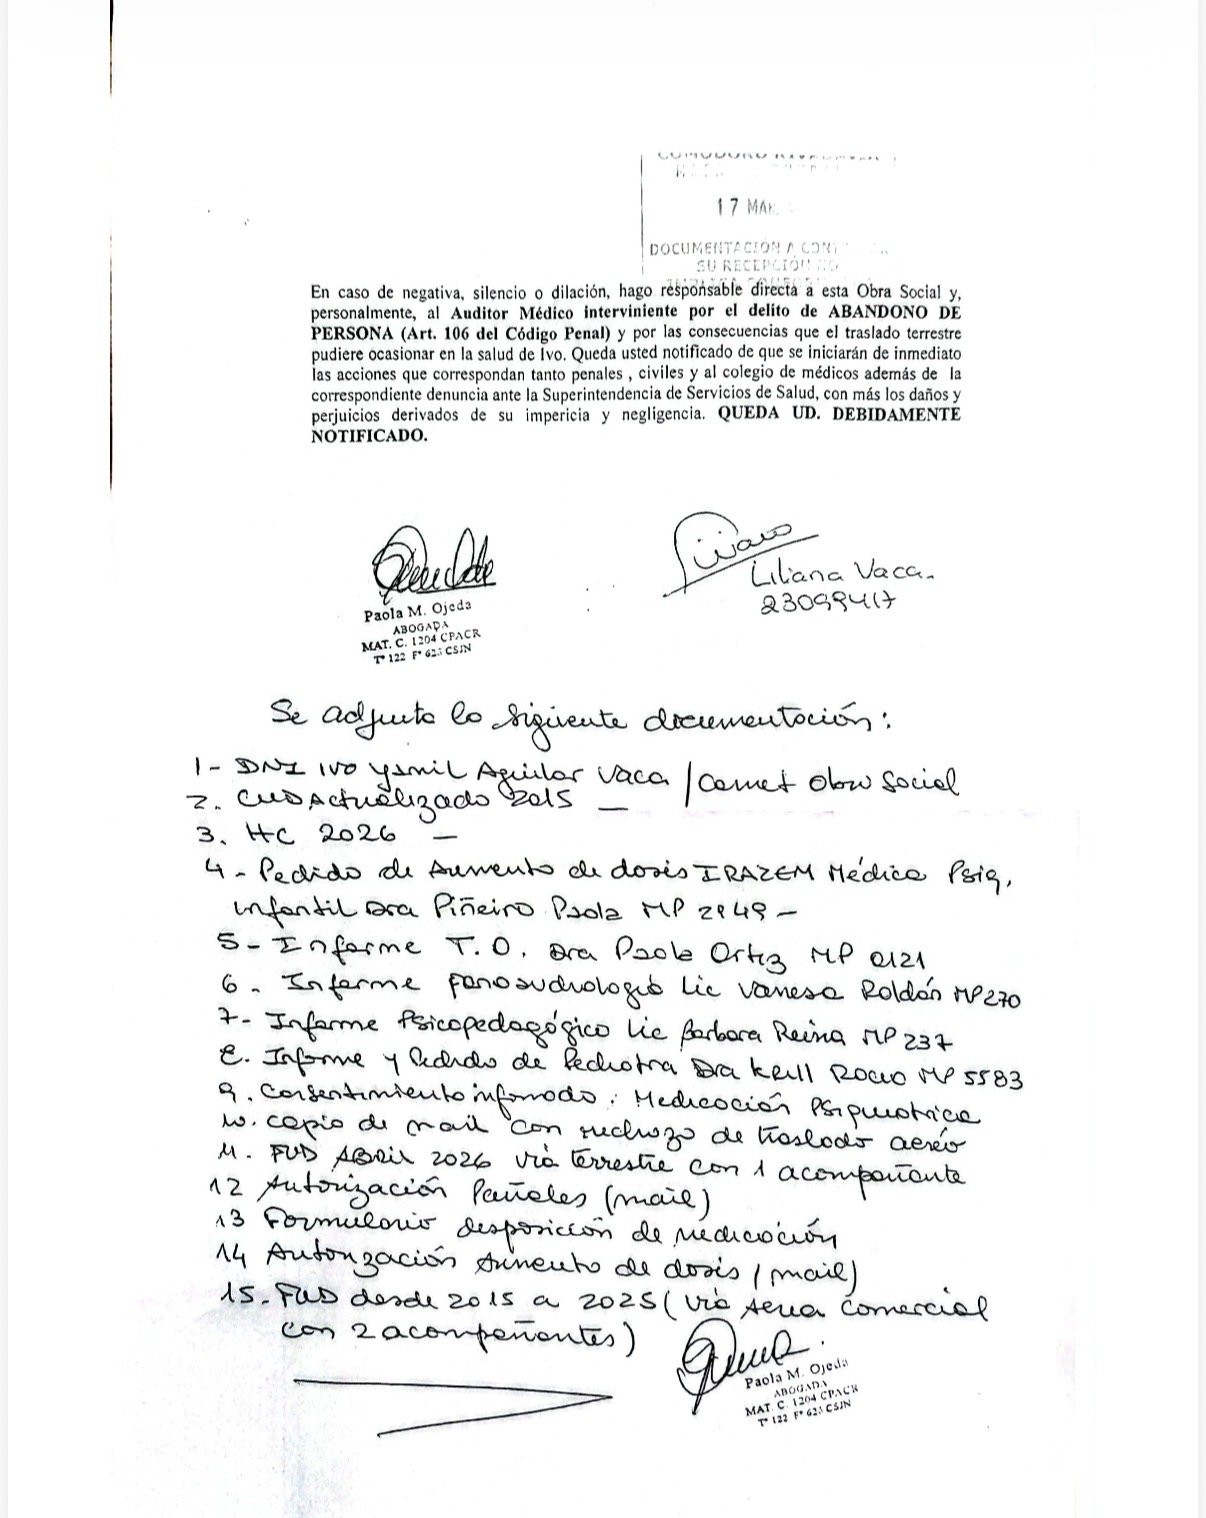 17 MAR.
DOCUMENTACIÓN A
SU RECEPCIÓN NO
En caso de negativa, silencio o dilación, hago responsable directa a esta Obra Social y,
personalmente, al Auditor Médico interviniente por el delito de ABANDONO DE
PERSONA (Art. 106 del Código Penal) y por las consecuencias que el traslado terrestre
pudiere ocasionar en la salud de Ivo. Queda usted notificado de que se iniciarán de inmediato
las acciones que correspondan tanto penales , civiles y al colegio de médicos además de la
correspondiente denuncia ante la Superintendencia de Servicios de Salud, con más los daños y
perjuicios derivados de su impericia y negligencia. QUEDA UD. DEBIDAMENTE
NOTIFICADO.
Paola M. Ojeda
ABOGADA
MAT. C. 1204 CPACR
Tº 122 Fº 623 CSJN
Liliana Vaca.
23099417
Se adjunta la siguiente documentación:
1- DNI IVO Yamil Aguilar Vaca / Carnet Obra Social
2. CUD Actualizado 2015 —
3. HC 2026 —
4- Pedido de Aumento de dosis IRAZEM Médica Psiq.
infantil Dra Piñeiro Paola MP 2949 -
5- Informe T.O. Dra Paola Ortiz MP 0121
6. Informe fonoaudiología Lic Vanesa Roldán MP 270
7- Informe Psicopedagógico Lic Barbara Reina MP 237
8. Informe y Pedido de Pediatra Dra Krill Rocio MP 5583
9. Consentimiento informado: Medicación Psiquiatrica
10. copia de mail con rechazo de traslado aéreo
11. FUD ABRIL 2026 vía terrestre con 1 acompañante
12 Autorización Pañales (mail)
13 Formulario disposición de medicación
14 Autorización Aumento de dosis (mail)
15. FUD desde 2015 a 2025 (Vía Aerea Comercial
con 2 acompañantes)
Paola M. Ojeda
ABOGADA
MAT. C. 1204 CPACR
Tº 122 Fº 623 CSJN